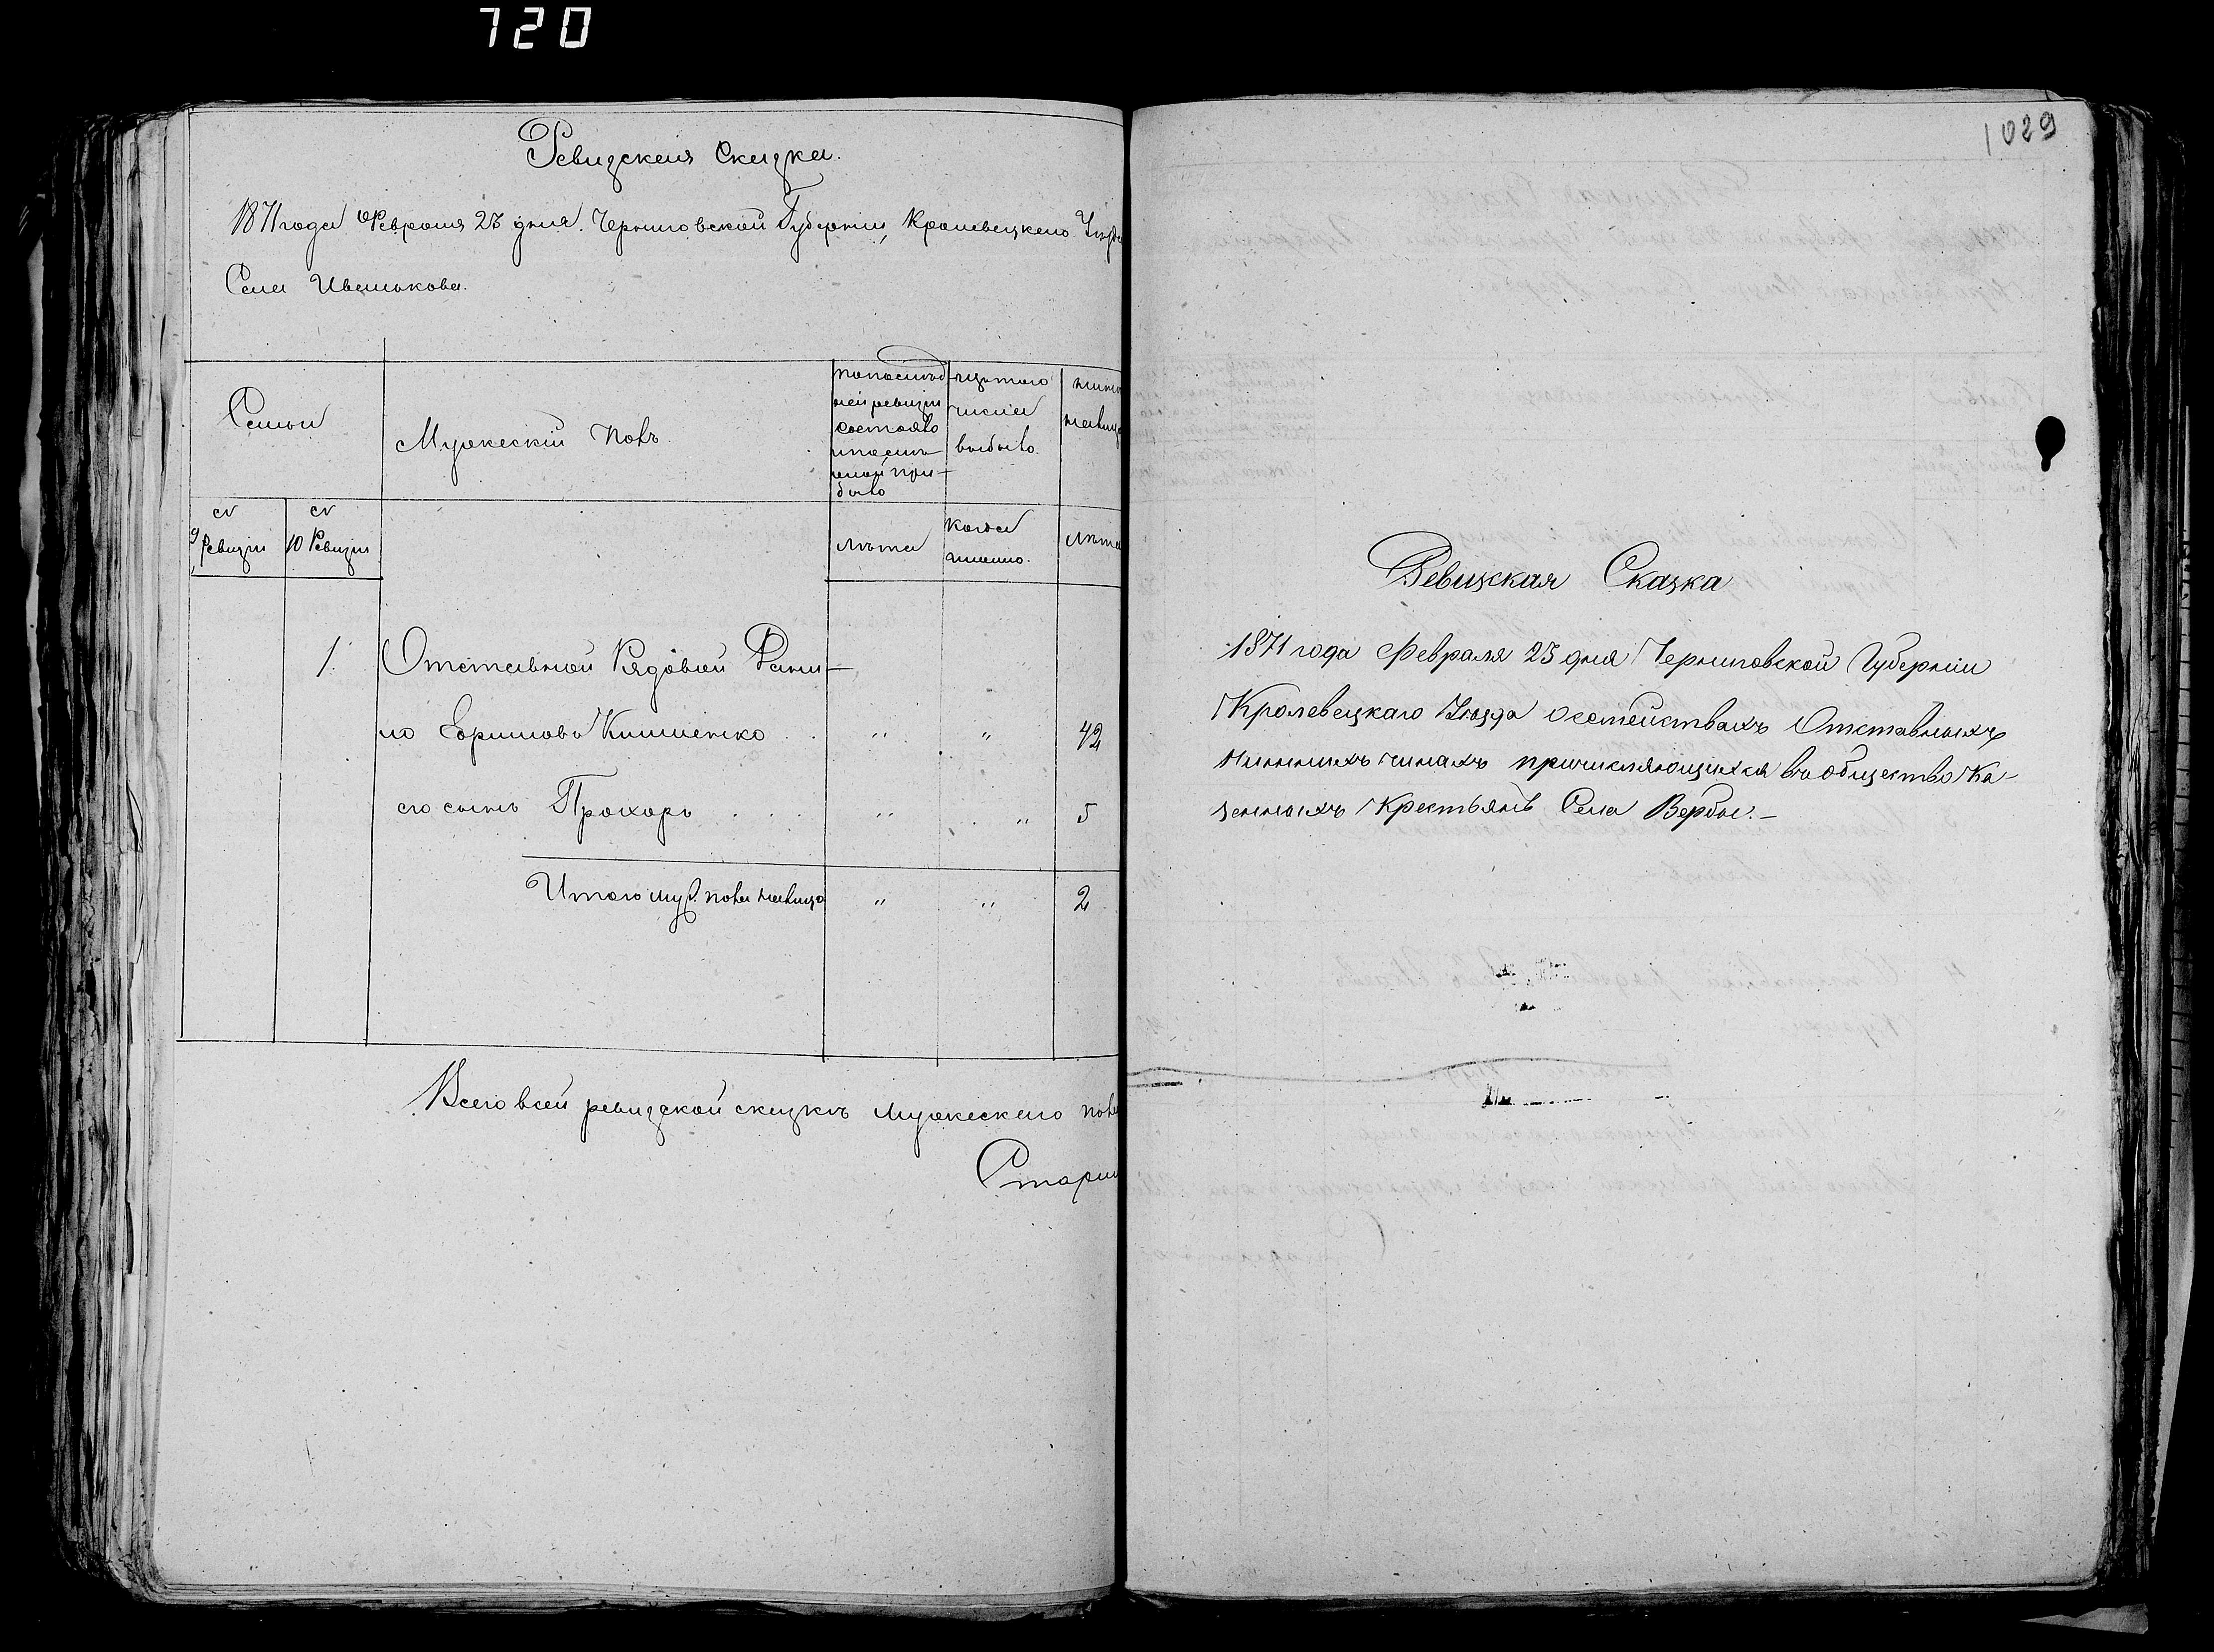 720
Ревизская Сказка.
1871 года Февраля 23 дня. Черниговской Губерніи, Кролевецкаго Уѣзда
Села Ивашкова.
Семьи
Мужескій полъ
по послѣд
ней ревизіи
состояло
и послѣ
оной при-
было
изъ того
числа
выбыло.
ныне
налицо
съ
9 Ревизіи
съ
10 Ревизіи
лѣта
когда
именно.
лѣта
1. Отставной Рядовой
Кишенко . . " " 42
его сынъ Прохоръ . . . . " " 5
Итого муж. пола налицо " " 2
Всего въ сей ревизской сказкѣ мужескаго пола
Старши
1029
Ревизская Сказка
1871 года Февраля 23 дня Черниговской Губерніи
Кролевецкаго Уѣзда о семействахъ Отставныхъ
Нижнихъ чинахъ причисляющихся въ общество Ка-
зенныхъ Крестьянъ Села Вербы.—